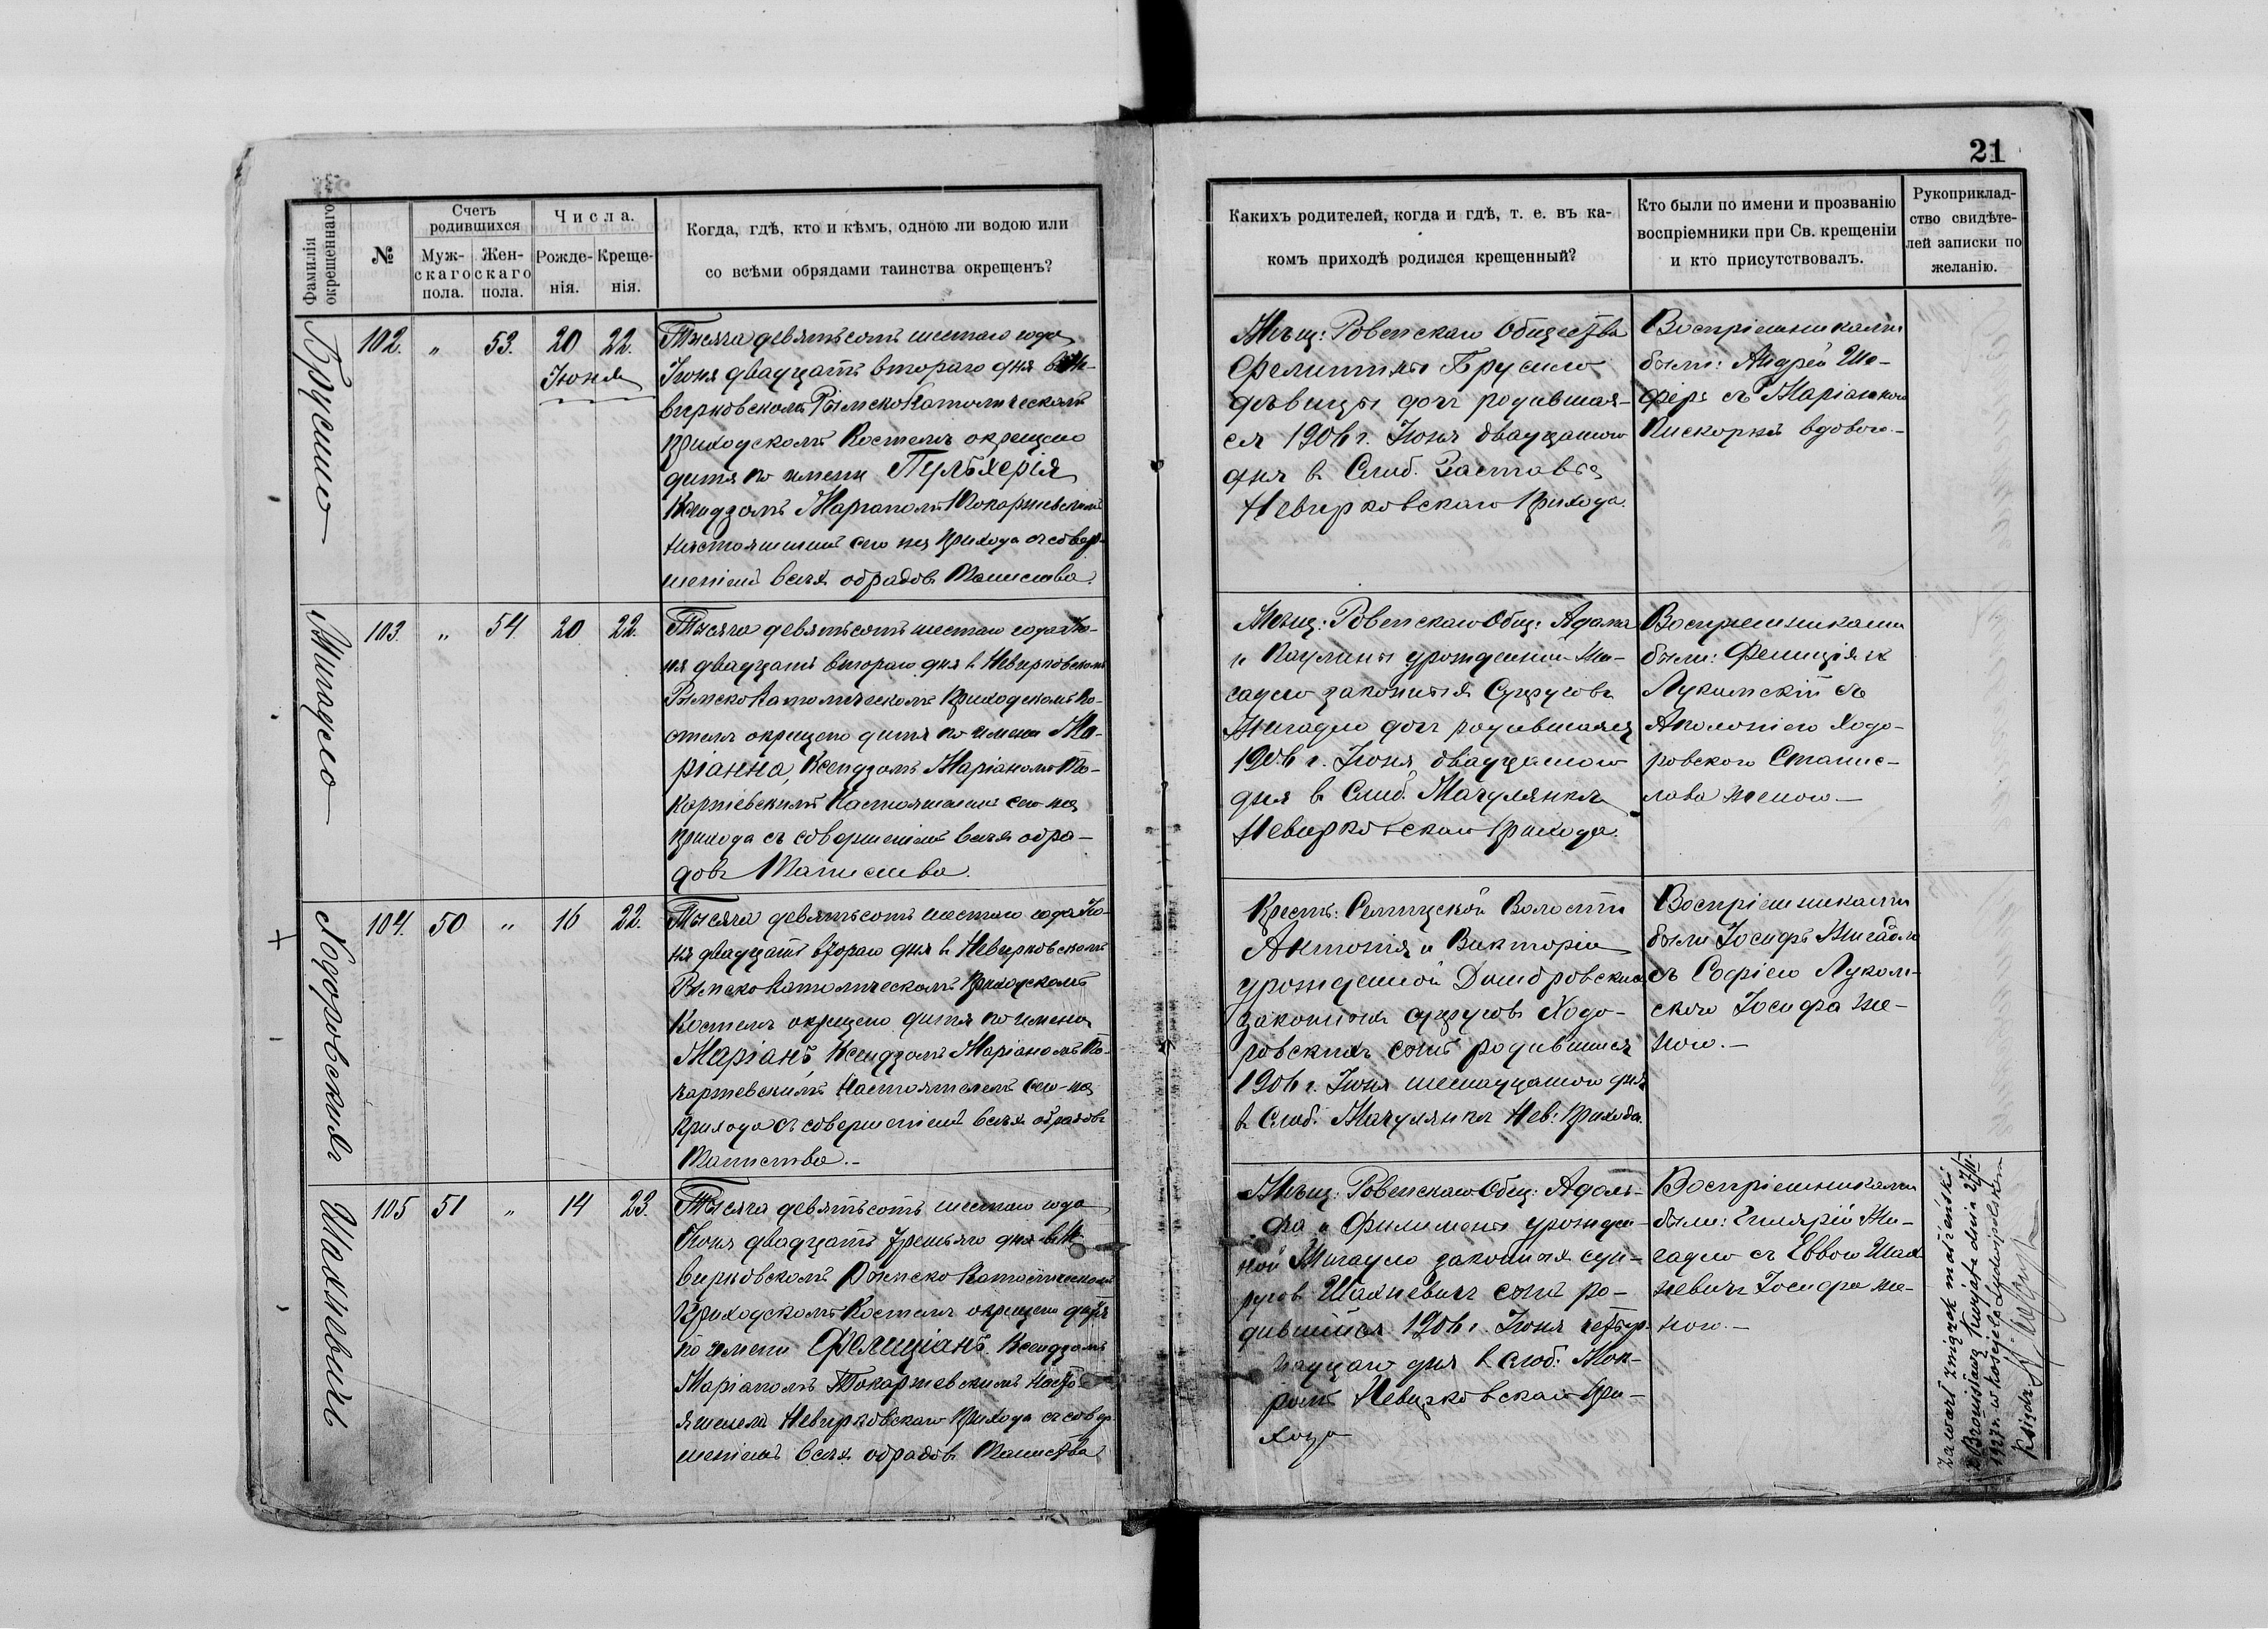 21
Фамилія
окрещеннаго
№
Счетъ
родившихся
Муж-
скаго
пола.
Жен-
скаго
пола.
Числа.
Рожде-
нія.
Креще-
нія.
Когда, гдѣ, кто и кѣмъ, одною ли водою или
со всѣми обрядами таинства окрещенъ?
Какихъ родителей, когда и гдѣ, т. е. въ ка-
комъ приходѣ родился крещенный?
Кто были по имени и прозванію
воспріемники при Св. крещеніи
и кто присутствовалъ.
Рукоприклад-
ство свидѣте-
лей записки по
желанію.
Брусило
102. „ 53. 20 22.
Іюня
Тысяча девятьсотъ шестаго года
Іюня двадцать втораго дня в Не-
вирковскомъ Римско Католическомъ
приходскомъ Костелѣ окрещено
дитя по имени Пульхерія
Ксендзомъ Маріаномъ Токаржевскимъ
Настоятелемъ сего-же Прихода съ совер-
шеніемъ всѣхъ обрядовъ Таинства.
Мѣщ: Ровенскаго Общества
Фелитины Брусило
дѣвицы дочь родившая-
ся 1906 г. Іюня двадцатого
дня в Слоб. Заставье
Невирковскаго Прихода.
Воспріемниками
были: Андрей Ше-
феръ съ Маріанною
Пискоржъ вдовою.—
Жигадло
103. „ 54 20 22.
Тысяча девятьсотъ шестаго года Ію-
ня двадцать втораго дня в Невирковскомъ
Римско Католическомъ Приходскомъ Ко-
стелѣ окрещено дитя по имени Ма-
ріанна, Ксендзомъ Маріаномъ То-
каржевскимъ Настоятелемъ сего-же
Прихода съ совершеніемъ всѣхъ обря-
довъ Таинства.
Мѣщ: Ровенскаго Общ: Адама
и Паулины урожденной Жи-
гадло законныхъ Супруговъ
Жигадло дочь родившаяся
1906 г. Іюня двадцатого
дня в Слоб. Мачулянка
Невирковскаго Прихода.
Воспріемниками
были:
съ
Аполоніею Ходо-
ровского Станис-
лава женою—
Ходоровскій
104. 50 „ 16 22.
Тысяча девятьсотъ шестаго года Ію-
ня двадцать втораго дня в Невирковскомъ
Римско Католическомъ Приходскомъ
Костелѣ окрещено дитя по имени
Маріанъ, Ксендзомъ Маріаномъ То-
каржевскимъ Настоятелемъ сего-же
Прихода съ совершеніемъ всѣхъ обрядовъ
Таинства.—
Крест: Волости
Антонія и Викторіи
урожденной Домбровскихъ
законныхъ супруговъ Ходо-
ровскихъ сынъ родившійся
1906 г. Іюня шестнадцатого дня
в Слоб. Мачулянка Нев: Прихода.
Воспріемниками
были Іосифъ Жигадло
съ Софіею Луком-
ского Іосифа же-
ною.—
Шахневичъ
105 51 „ 14 23.
Тысяча девятьсотъ шестаго года
Іюня двадцать третьяго дня в Не-
вирковскомъ Римско Католическомъ
Приходскомъ Костелѣ окрещено дитя
по имени Фелиціанъ. Ксендзомъ
Маріаномъ Токаржевскимъ Насто-
ятелемъ Невирковскаго Прихода съ совер-
шеніемъ всѣхъ обрядовъ Таинства
Мѣщ: Ровенскаго Общ: Адоль-
фа и Филимены урожден-
ной Жигадло законныхъ суп-
руговъ Шахневичъ сынъ ро-
дившійся 1906 г. Іюня четыр-
надцаго дня в слоб. Мок-
ромъ Невирковскаго При-
хода
Воспріемниками
были: Гилярій Жи-
гадло съ Еввою Шах
невичъ Іосифа же-
ною.—
Zawarł związek małżeński
z Bronisławą Kwiatą dnia 27/II-
1927 r. w kościele Ludwipolskim
Ksiądz